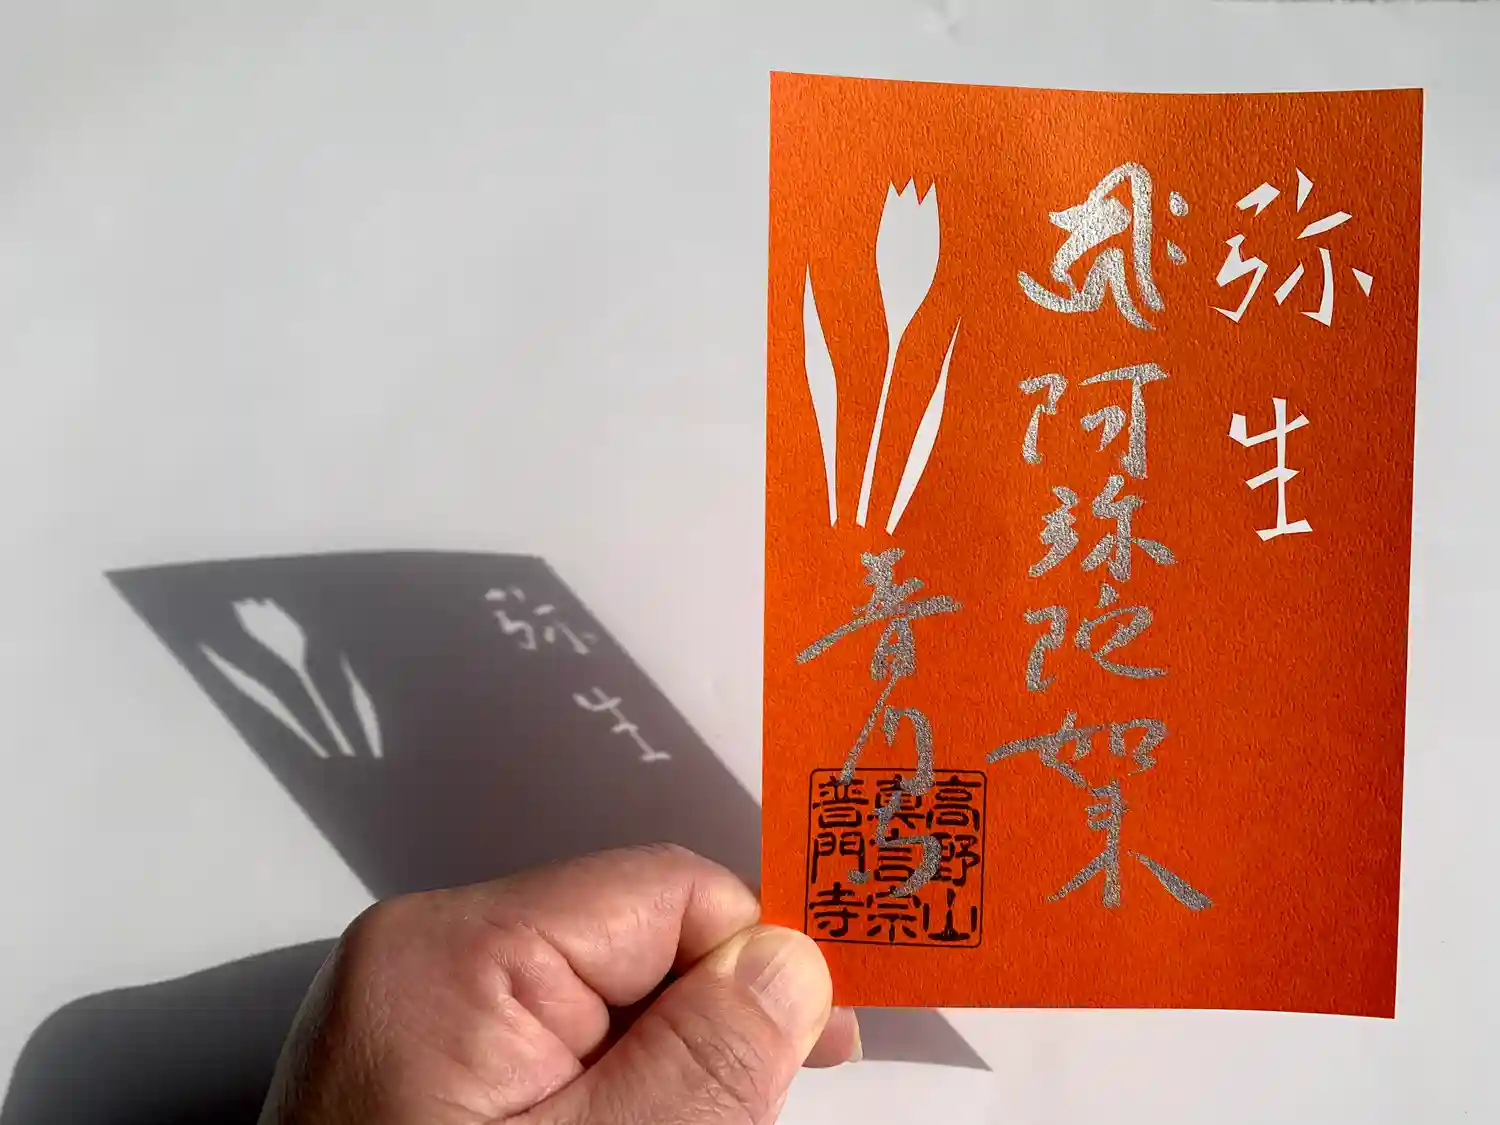 弥生
阿弥陀如来
普門寺
高野山
真言宗
普門寺